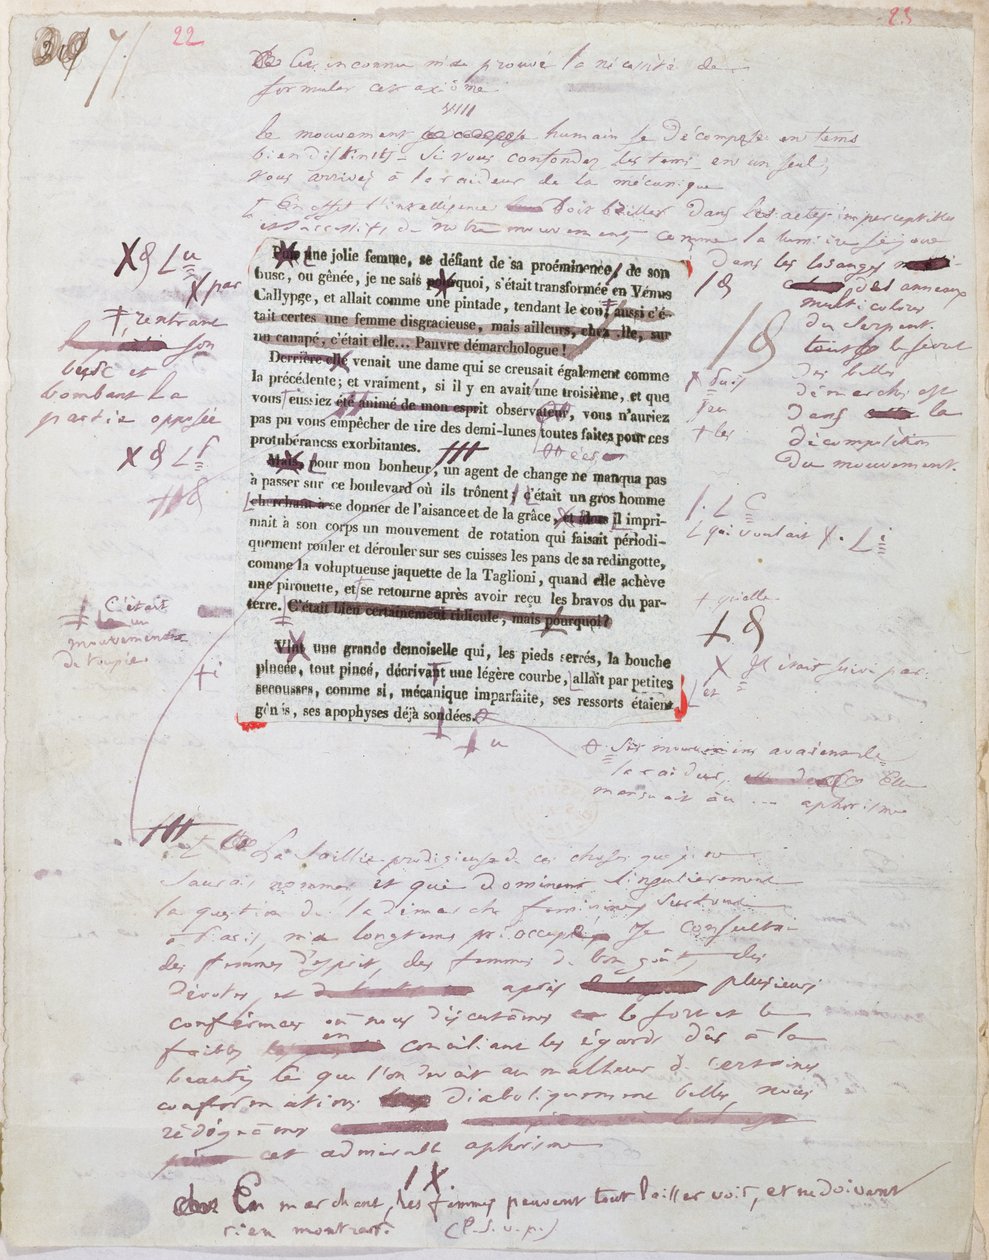 22
23
Cet inconnu m'a prouvé la nécessité de
formuler cet axiôme
VIII
le mouvement humain se décompose en tems
bien distincts - si vous confondez les tems en un seul,
vous arrivez à la raideur de la mécanique
En effet l'intelligence doit briller dans les actes imperceptibles
et successifs de notre mouvement comme la lumière se joue
dans les losanges
des anneaux
multicolores
du serpent.
tout le secret
des belles
démarches est
dans la
décomposition
du mouvement.
par
rentrant
son
busc et
bombant la
partie opposée
Puis une jolie femme, se défiant de sa proéminence, de son
busc, ou gênée, je ne sais pourquoi, s'était transformée en Vénus
Callypge, et allait comme une pintade, tendant le cou, aussi c'é-
tait certes une femme disgracieuse, mais ailleurs, chez elle, sur
un canapé, c'était elle... Pauvre démarchologue!
Derrière elle venait une dame qui se creusait également comme
la précédente; et vraiment, si il y en avait une troisième, et que
vous eussiez été animé de mon esprit observateur, vous n'auriez
pas pu vous empêcher de rire des demi-lunes toutes faites pour ces
protubérancss exorbitantes.
Mais, pour mon bonheur, un agent de change ne manqua pas
à passer sur ce boulevard où ils trônent; c'était un gros homme
cherchant à se donner de l'aisance et de la grâce, et dont il impri-
mait à son corps un mouvement de rotation qui faisait périodi-
quement rouler et dérouler sur ses cuisses les pans de sa redingotte,
comme la voluptueuse jaquette de la Taglioni, quand elle achève
une pirouette, et se retourne après avoir reçu les bravos du par-
terre. C'était bien certainement ridicule, mais pourquoi?
Vint une grande demoiselle qui, les pieds serrés, la bouche
pincée, tout pincé, décrivant une légère courbe, allait par petites
secousses, comme si, mécanique imparfaite, ses ressorts étaient
gênés, ses apophyses déjà soudées.
qui voulait
C'était
un
mouvement
de toupie.
Il était suivi par
et
Ses mouvemens avaient de
la raideur, Elle
manquait au ... aphorisme
La saillie prodigieuse de ces choses que je ne
saurais nommer et qui dominent singulièrement
la question de la démarche féminine surtout
à Paris, m'a longtems préoccupé. Je consultai
des femmes d'esprit, des femmes de bon goût, des
dévotes, et après plusieurs
conférences où nous discutâmes le fort et le
faible en conciliant les égards dûs à la
beauté et que l'on devait au malheur de certaines
conformations diaboliquement belles, nous
rédigeâmes
cet admirable aphorisme
IX.
En marchant, les femmes peuvent tout laisser voir, et ne doivent
rien montrer. (T. S. v. p.)